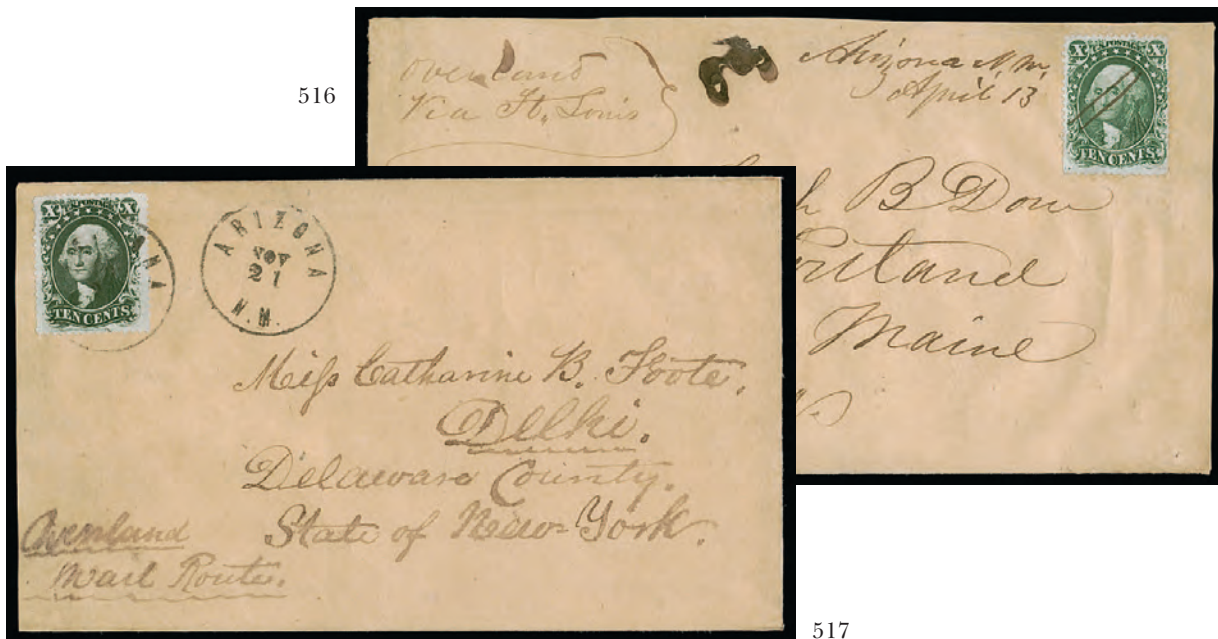 516
overland
Via St. Louis
Arizona N.M.
April 13
X U.S. POSTAGE X
TEN CENTS
B Dow
Portland
Maine
X U.S. POSTAGE X
TEN CENTS
ARIZONA
NOV
21
N.M.
Miss Catharine B. Foote.
Delhi.
Delaware County.
State of New-York.
Overland
Mail Route.
517